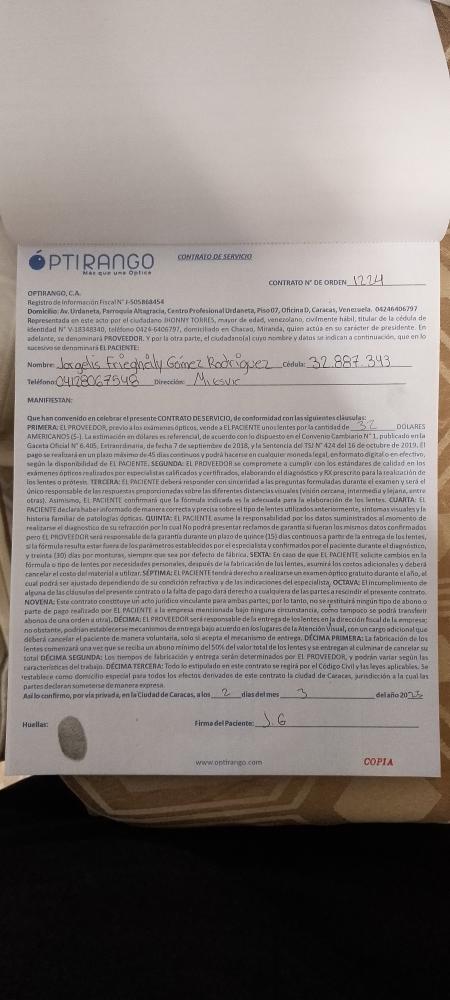 ÓPTIRANGO
Más que una Óptica
CONTRATO DE SERVICIO
CONTRATO N° DE ORDEN 1224
OPTIRANGO, C.A.
Registro de Información Fiscal N° J-505868454
Domicilio: Av. Urdaneta, Parroquia Altagracia, Centro Profesional Urdaneta, Piso 07, Oficina D, Caracas, Venezuela. 04246406797
Representada en este acto por el ciudadano JHONNY TORRES, mayor de edad, venezolano, civilmente hábil, titular de la cédula de
identidad N° V-18348340, teléfono 0424-6406797, domiciliado en Chacao, Miranda, quien actúa en su carácter de presidente. En
adelante, se denominará PROVEEDOR. Y por la otra parte, el ciudadano(a) cuyo nombre y datos se indican a continuación, que en lo
sucesivo se denominará EL PACIENTE:
Nombre: Gómez Rodríguez Cédula: 32.887.343
Teléfono: 04128067548 Dirección:
MANIFIESTAN:
Que han convenido en celebrar el presente CONTRATO DE SERVICIO, de conformidad con las siguientes cláusulas:
PRIMERA: EL PROVEEDOR, previo a los exámenes ópticos, vende a EL PACIENTE unos lentes por la cantidad de 32 DÓLARES
AMERICANOS ($-). La estimación en dólares es referencial, de acuerdo con lo dispuesto en el Convenio Cambiario N° 1, publicado en la
Gaceta Oficial N° 6.405, Extraordinaria, de fecha 7 de septiembre de 2018, y la Sentencia del TSJ N° 424 del 16 de octubre de 2019. El
pago se realizará en un plazo máximo de 45 días continuos y podrá hacerse en cualquier moneda legal, en formato digital o en efectivo,
según la disponibilidad de EL PACIENTE. SEGUNDA: EL PROVEEDOR se compromete a cumplir con los estándares de calidad en los
exámenes ópticos realizados por especialistas calificados y certificados, elaborando el diagnóstico y RX prescrito para la realización de
los lentes o prótesis. TERCERA: EL PACIENTE deberá responder con sinceridad a las preguntas formuladas durante el examen y será el
único responsable de las respuestas proporcionadas sobre las diferentes distancias visuales (visión cercana, intermedia y lejana, entre
otras). Asimismo, EL PACIENTE confirmará que la fórmula indicada es la adecuada para la elaboración de los lentes. CUARTA: EL
PACIENTE declara haber informado de manera correcta y precisa sobre el tipo de lentes utilizados anteriormente, síntomas visuales y la
historia familiar de patologías ópticas. QUINTA: EL PACIENTE asume la responsabilidad por los datos suministrados al momento de
realizarse el diagnóstico de su refracción por lo cual No podrá presentar reclamos de garantía si fueran los mismos datos confirmados
pero EL PROVEEDOR será responsable de la garantía durante un plazo de quince (15) días continuos a partir de la entrega de los lentes,
si la fórmula resulta estar fuera de los parámetros establecidos por el especialista y confirmados por el paciente durante el diagnóstico,
y treinta (30) días por monturas, siempre que sea por defecto de fábrica. SEXTA: En caso de que EL PACIENTE solicite cambios en la
fórmula o tipo de lentes por necesidades personales, después de la fabricación de los lentes, asumirá los costos adicionales y deberá
cancelar el costo del material a utilizar. SÉPTIMA: EL PACIENTE tendrá derecho a realizarse un examen óptico gratuito durante el año, el
cual podrá ser ajustado dependiendo de su condición refractiva y de las indicaciones del especialista. OCTAVA: El incumplimiento de
alguna de las cláusulas del presente contrato o la falta de pago dará derecho a cualquiera de las partes a rescindir el presente contrato.
NOVENA: Este contrato constituye un acto jurídico vinculante para ambas partes; por lo tanto, no se restituirá ningún tipo de abono o
parte de pago realizado por EL PACIENTE a la empresa mencionada bajo ninguna circunstancia, como tampoco se podrá transferir
abonos de una orden a otra). DÉCIMA: EL PROVEEDOR será responsable de la entrega de los lentes en la dirección fiscal de la empresa;
no obstante, podrían establecerse mecanismos de entrega bajo acuerdo en los lugares de la Atención Visual, con un cargo adicional que
deberá cancelar el paciente de manera voluntaria, solo si acepta el mecanismo de entrega. DÉCIMA PRIMERA: La fabricación de los
lentes comenzará una vez que se reciba un abono mínimo del 50% del valor total de los lentes y se entregan al culminar de cancelar su
total DÉCIMA SEGUNDA: Los tiempos de fabricación y entrega serán determinados por EL PROVEEDOR, y podrán variar según las
características del trabajo. DÉCIMA TERCERA: Todo lo estipulado en este contrato se regirá por el Código Civil y las leyes aplicables. Se
establece como domicilio especial para todos los efectos derivados de este contrato la ciudad de Caracas, jurisdicción a la cual las
partes declaran someterse de manera expresa.
Así lo confirmo, por vía privada, en la Ciudad de Caracas, a los 2 días del mes 3 del año 2025
Huellas:
Firma del Paciente: J.G
www.optirango.com
COPIA